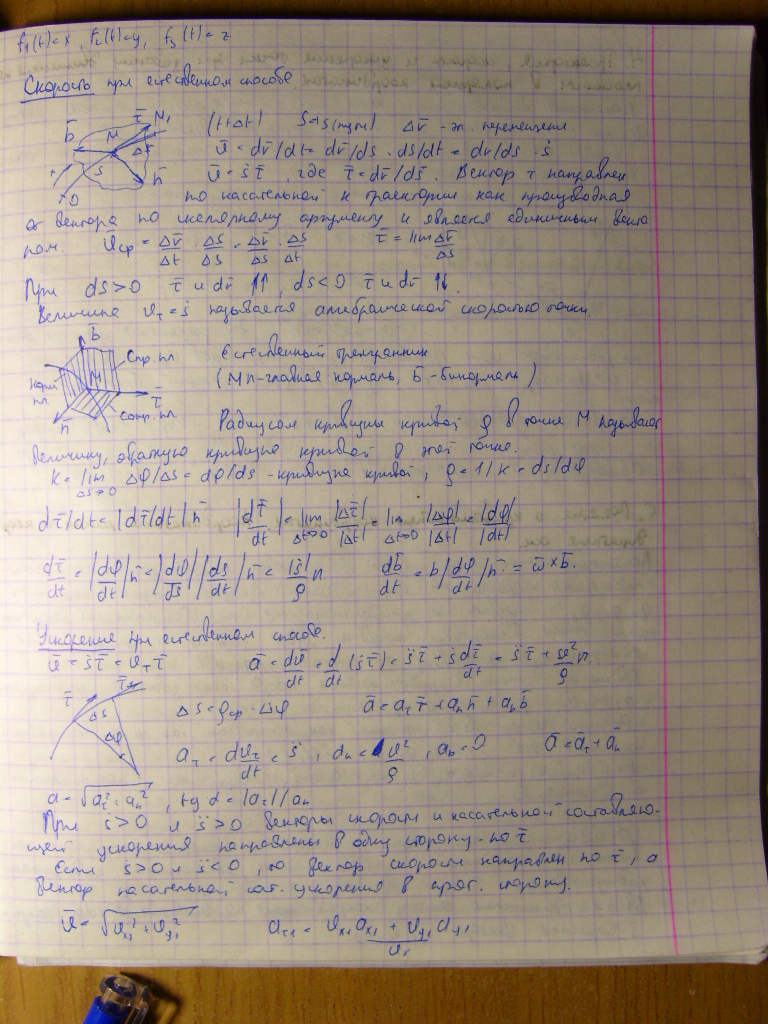 f₁(t)=x, f₂(t)=y, f₃(t)=z
Скорость при естественном способе
τ̄ M₁ b̄ M Δr̄ S n̄ + O
(t+Δt) Δr̄ - эл. перемещения
ū = dr̄/dt = dr̄/ds · ds/dt = dr̄/ds · ṡ
ū = ṡ τ̄, где τ̄ = dr̄/ds. Вектор τ направлен
по касательной к траектории как производная
от вектора по скалярному аргументу и является единичным векто
ром. ū ср = Δr̄/Δt · Δs/Δs = Δr̄/Δs · Δs/Δt τ̄ = lim Δr̄/Δs
При ds>0 τ̄ и dr̄ ↑↑, ds<0 τ̄ и dr̄ ↑↓.
Величина υτ = ṡ называется алгебраической скоростью точки.
b̄ Спр. пл Норм пл. M τ̄ n̄ Сопр. пл
Естественный трехгранник
(Mn-главная нормаль, b̄ - бинормаль)
Радиусом кривизны кривой ρ в точке M называют
величину, обратную кривизне кривой в этой точке.
k = lim Δs→0 Δφ/Δs = dφ/ds - кривизна кривой, ρ = 1/k = ds/dφ
dτ̄/dt = |dτ̄/dt| n̄ |dτ̄/dt| = lim Δt→0 |Δτ̄|/|Δt| = lim Δt→0 |Δφ|/|Δt| = |dφ|/|dt|
dτ̄/dt = |dφ/dt| n̄ = |dφ/ds| |ds/dt| n̄ = |ṡ|/ρ n db̄/dt = b |dφ/dt| n̄ = ω̄ × b̄.
Ускорение при естественном способе.
ū = ṡ τ̄ = υτ τ̄ ā = dū/dt = d/dt (ṡ τ̄) = s̈ τ̄ + ṡ dτ̄/dt = s̈ τ̄ + υ²/ρ n
τ̄ τ̄₁ Δs Δφ
Δs = ρср · Δφ ā = aτ τ̄ + an n̄ + ab b̄
aτ = dυτ/dt = s̈, an = υ²/ρ, ab = 0 ā = āτ + ān
a = √aτ² + an², tg α = |aτ|/an
При ṡ>0 и s̈>0 векторы скорости и касательной составляю-
щей ускорения направлены в одну сторону - по τ̄
Если ṡ>0 и s̈<0, то вектор скорости направлен по τ̄, а
вектор касательной сост. ускорения в прот. сторону.
ū = √υx₁² + υy₁² aτ₁ = υx₁ ax₁ + υy₁ ay₁ / υr